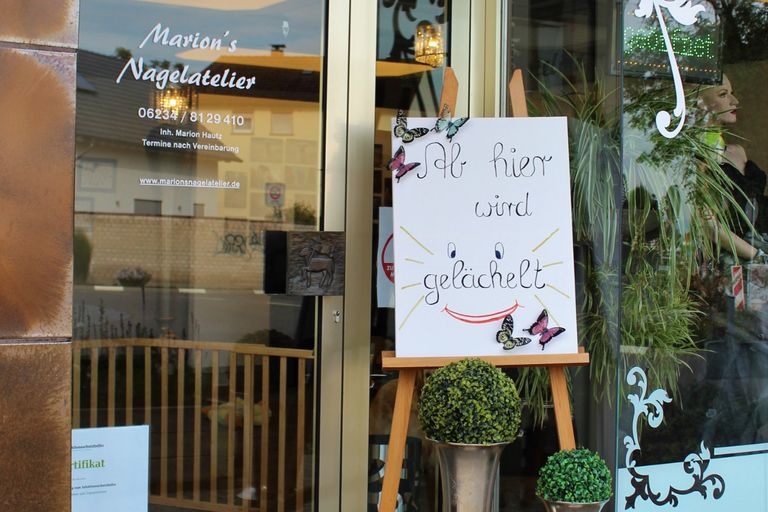 Marion's
Nagelatelier
06234 / 81 29 410
Inh. Marion Hautz
Termine nach Vereinbarung
www.marionsnagelatelier.de
Ab hier
wird
gelächelt
rtifikat